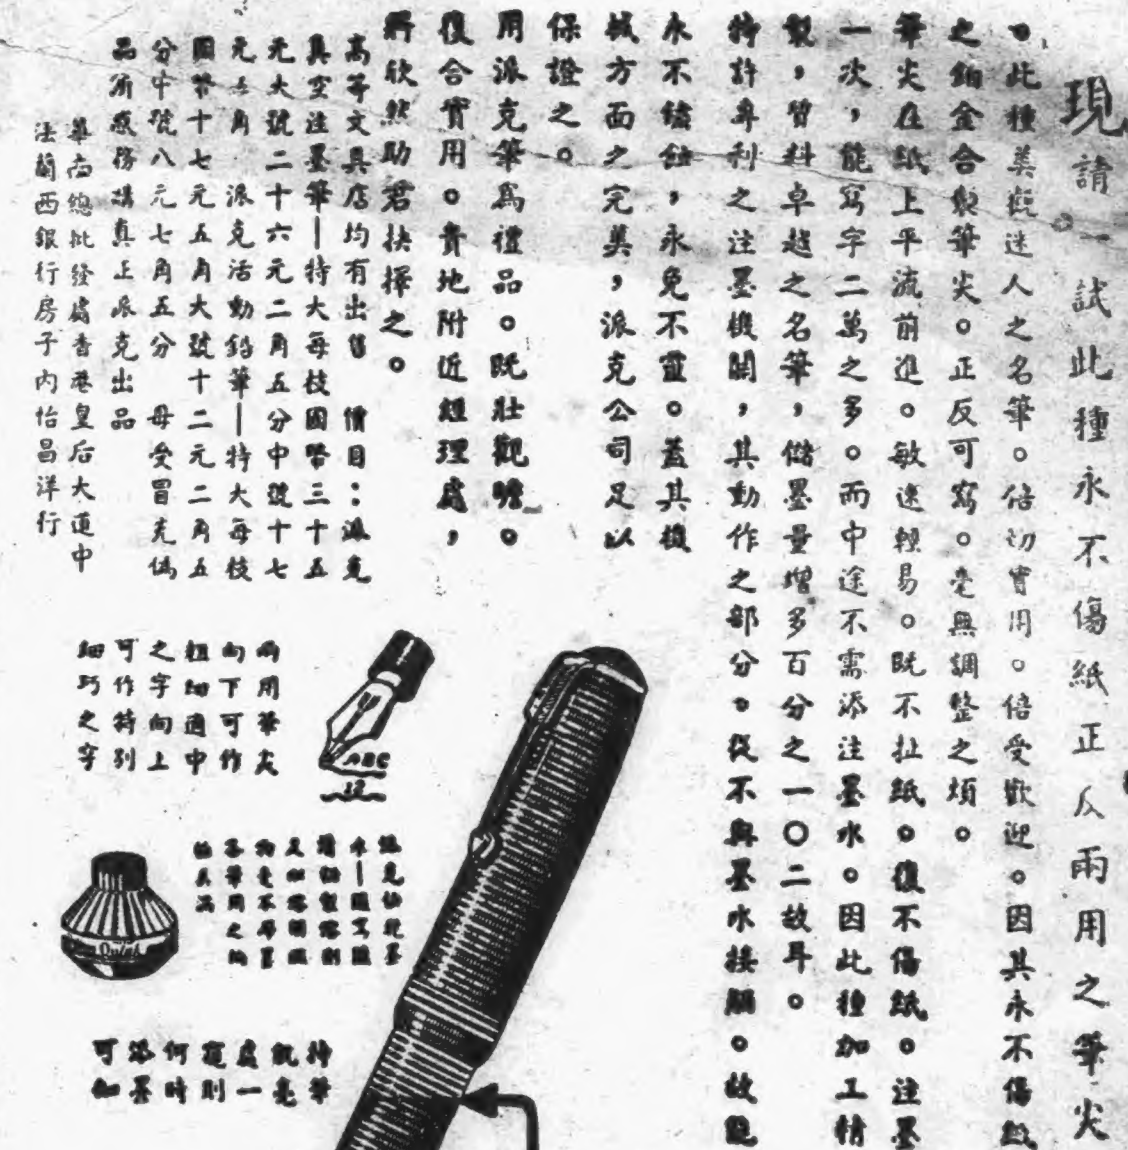 現請一試此種永不傷紙正反兩用之筆尖
。此種美觀迷人之名筆。倍切實用。倍受歡迎。因其永不傷紙
之鉑金合製筆尖。正反可寫。毫無調整之煩。
筆尖在紙上平流前進。敏速輕易。既不扯紙。復不傷紙。注墨
一次，能寫字二萬之多。而中途不需添注墨水。因此種加工精
製，質料卓越之名筆，儲墨量增多百分之一〇二故耳。
特許專利之注墨機關，其動作之部分。從不與墨水接觸。故能
永不鏽蝕，永免不靈。蓋其機
械方面之完美，派克公司足以
保證之。
用派克筆爲禮品。既壯觀瞻。
復合實用。貴地附近經理處，
將欣然助君抉擇之。
高等文具店均有出售 價目：派克
真空注墨筆—特大每枝國幣三十五
元大號二十六元二角五分中號十七
元五角 派克活動鉛筆—特大每枝
國幣十七元五角大號十二元二角五
分中號八元七角五分 毋受冒充僞
品須認務購真正派克出品
華商總批發處香港皇后大道中
法蘭西銀行房子內怡昌洋行
兩用筆尖
向下可作
粗細適中
之字向上
可作特別
細巧之字
ABC
12
Quink
持筆
凱毫
處一
窺則
何時
添墨
可知